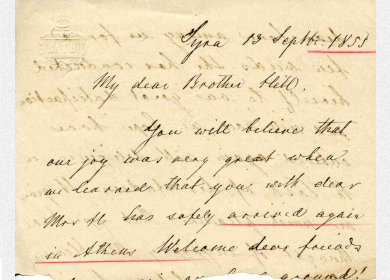 Syra 13 Septbr. 1853
My dear Brother Hill,
You will believe that
our joy was very great when
we learned that you with dear
Mrs H. has safely arrived again
in Athens Welcome dear friends
ground!